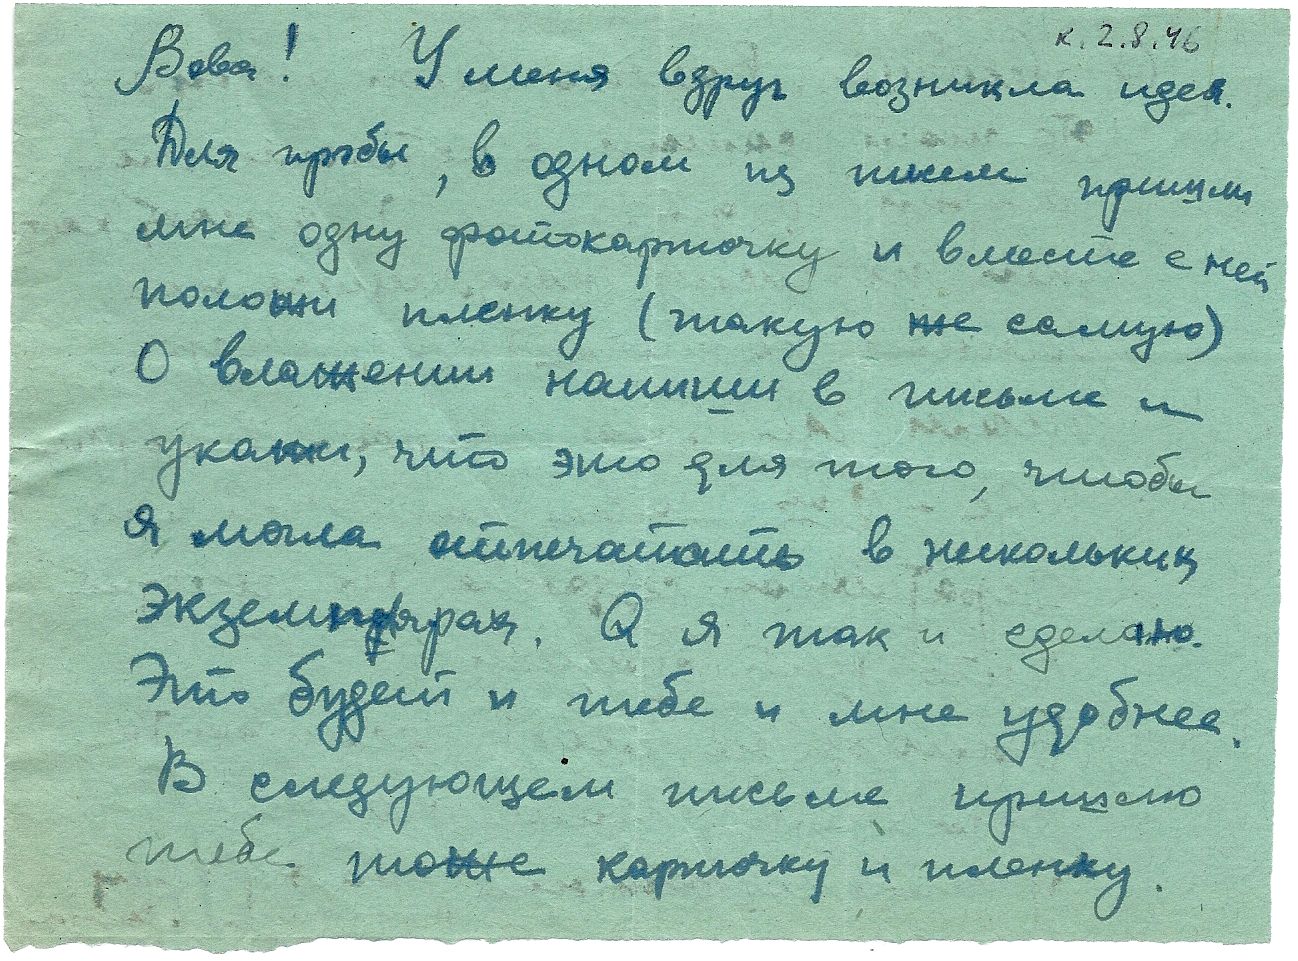 к. 2.8.46
Вова! У меня вдруг возникла идея.
Для пробы, в одном из писем пришли
мне одну фотокарточку и вместе с ней
положи пленку (такую же самую)
О вложении напиши в письме и
укажи, что это для того, чтобы
я могла отпечатать в нескольких
экземплярах. А я так и сделаю.
Это будет и тебе и мне удобнее.
В следующем письме пришлю
тебе тоже карточку и пленку.